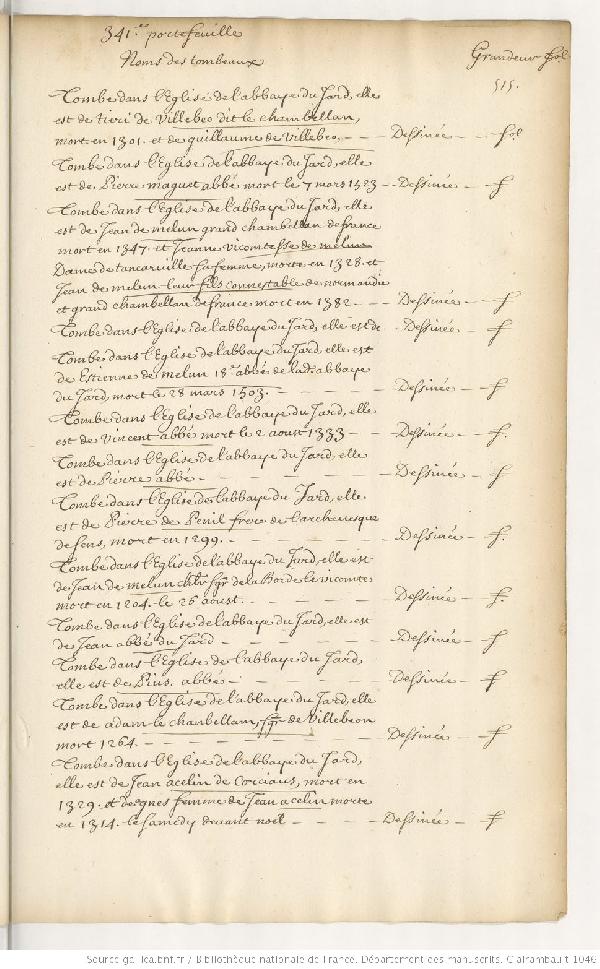 341.e portefeuille
Noms des tombeaux
Grandeur fol
515.
Tombe dans l'Eglise de l'abbaye du Jard, elle
est de tieri de Villebeo dit le chambellan,
mort en 1301. et de guillaume de Villebeo. — Dessinée — fol
Tombe dans l'Eglise de l'abbaye du Jard, elle
est de Pierre maguet abbé mort le 7 mars 1523 — Dessinée — f
Tombe dans l'Eglise de l'abbaye du Jard, elle
est de Jean de melun grand chambellan de france
mort en 1347. et Jeanne vicomtesse de melun
Dame de tancarville sa femme, morte en 1328. et
Jean de melun leur fils connestable de normandie
et grand chambellan de france mort en 1382 — Dessinée — f
Tombe dans l'Eglise de l'abbaye du Jard, elle est de — Dessinée — f
Tombe dans l'Eglise de l'abbaye du Jard, elle est
de Estienne de melun 18.e abbé de lad. abbaye
du Jard, mort le 28 mars 1503. — Dessinée — f
Tombe dans l'Eglise de l'abbaye du Jard, elle
est de Vincent abbé mort le 2 aoust 1333 — Dessinée — f.
Tombe dans l'Eglise de l'abbaye du Jard, elle
est de Pierre abbé — Dessinée — f
Tombe dans l'Eglise de l'abbaye du Jard, elle
est de Pierre de Penil frere de l'archevesque
de sens, mort en 1299. — Dessinée — f.
Tombe dans l'Eglise de l'abbaye du Jard, elle est
de Jean de melun chlr sgr de la Borde le vicomte
mort en 1204. le 26 aoust. — Dessinée — f.
Tombe dans l'Eglise de l'abbaye du Jard, elle est
des Jean abbé du Jard — Dessinée — f
Tombe dans l'Eglise de l'abbaye du Jard,
elle est de Pius. abbé — Dessinée — f
Tombe dans l'Eglise de l'abbaye du Jard, elle
est de adam le chanbellam, sgr de Villebeon
mort 1264. — Dessinée — f
Tombe dans l'Eglise de l'abbaye du Jard,
elle est de Jean acelin de Corciaus, mort en
1329. et de gnes femme de Jean acelin morte
en 1314. le samedy devant noël — Dessinée — f
Source gallica.bnf.fr / Bibliothèque nationale de France. Département des manuscrits. Clairambault 1046